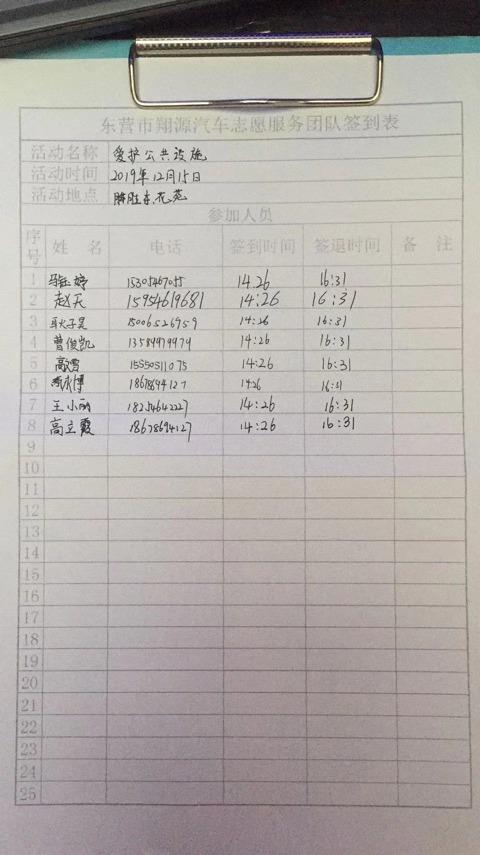 东营市翔源汽车志愿服务团队签到表
活动名称 爱护公共设施
活动时间 2019年12月15日
活动地点 胜东花苑
参加人员
序号 姓 名 电话 签到时间 签退时间 备 注
1 婷 15305467055 14:26 16:31
2 赵天 15954619681 14:26 16:31
3 耿子昊 15006526959 14:26 16:31
4 曹俊凯 13589979979 14:26 16:31
5 高雪 15550511075 14:26 16:31
6 博 18678694127 14:26 16:31
7 王小丽 14:26 16:31
8 高立霞 18678694127 14:26 16:31
9
10
11
12
13
14
15
16
17
18
19
20
21
22
23
24
25